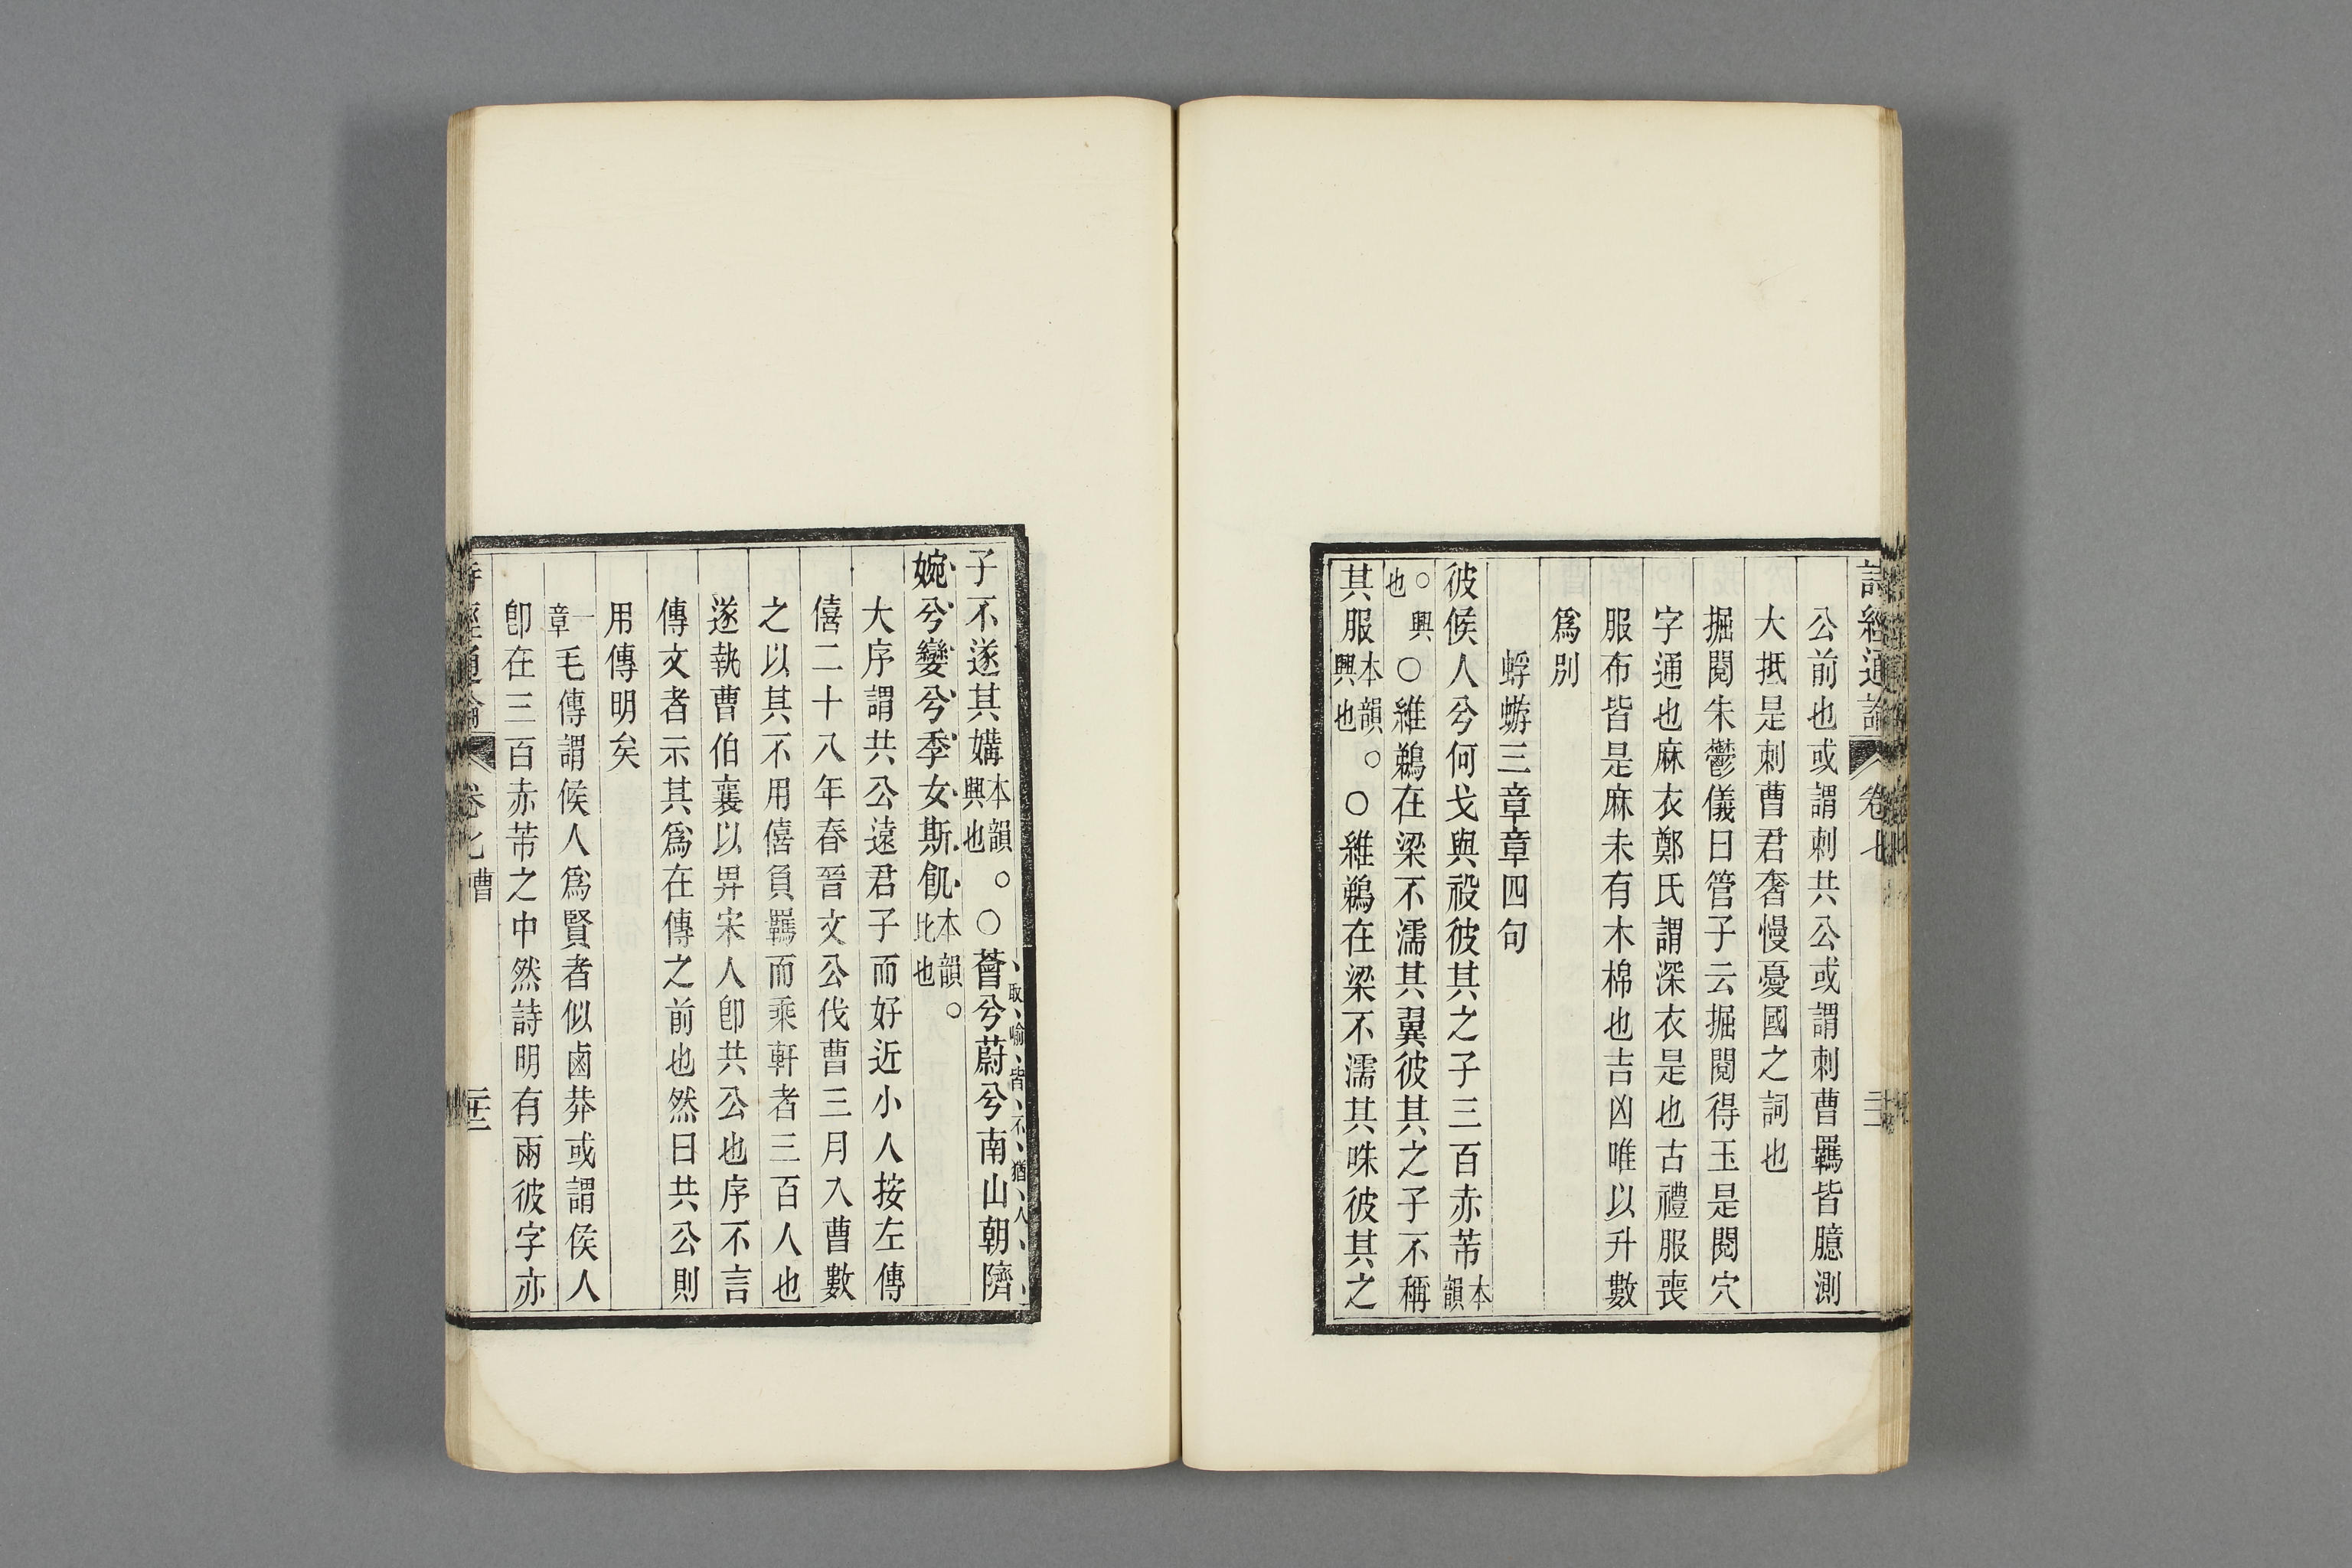 詩經通論 卷七
公前也或謂刺共公或謂刺曹羈皆臆測
大抵是刺曹君奢慢憂國之詞也
掘閱朱鬱儀曰管子云掘閱得玉是閱穴
字通也麻衣鄭氏謂深衣是也古禮服喪
服布皆是麻未有木棉也吉凶唯以升數
爲別
蜉蝣三章章四句
彼候人兮何戈與祋彼其之子三百赤芾本韻
○興也○維鵜在梁不濡其翼彼其之子不稱
其服本韻興也。○維鵜在梁不濡其咮彼其之
子不遂其媾本韻興也。○薈兮蔚兮南山朝隮
取喻皆不猶人
婉兮孌兮季女斯飢本韻比也。
大序謂共公遠君子而好近小人按左傳
僖二十八年春晉文公伐曹三月入曹數
之以其不用僖負羈而乘軒者三百人也
遂執曹伯襄以畀宋人卽共公也序不言
傳文者示其爲在傳之前也然曰共公則
用傳明矣
一章毛傳謂候人爲賢者似鹵莽或謂侯人
卽在三百赤芾之中然詩明有兩彼字亦
詩經通論 卷七曹